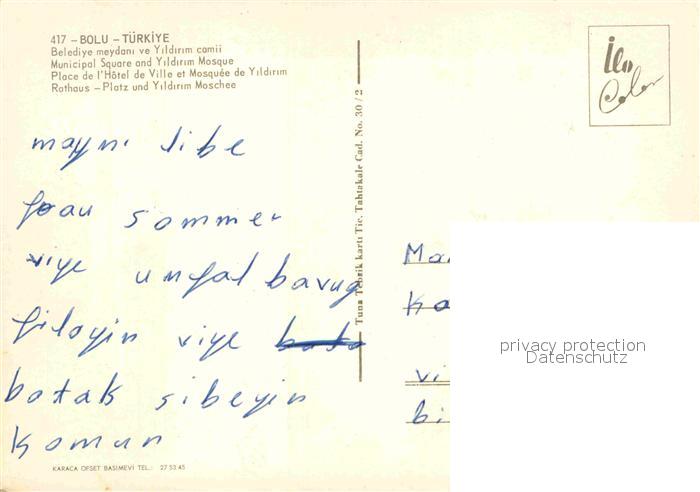 417 – BOLU – TÜRKİYE
Belediye meydanı ve Yıldırım camii
Municipal Square and Yıldırım Mosque
Place de l'Hôtel de Ville et Mosquée de Yıldırım
Rathaus – Platz und Yıldırım Moschee
mayni libe
frau sommer
viye unfal bavug
filayin viye
batak sibeyin
komun
Tuna Tebrik kartı Tic. Tahtakale Cad. No. 30/2
İlo
Color
Ma
Ka
vi
bi
privacy protection
Datenschutz
KARACA OFSET BASIMEVİ TEL.: 27 53 45